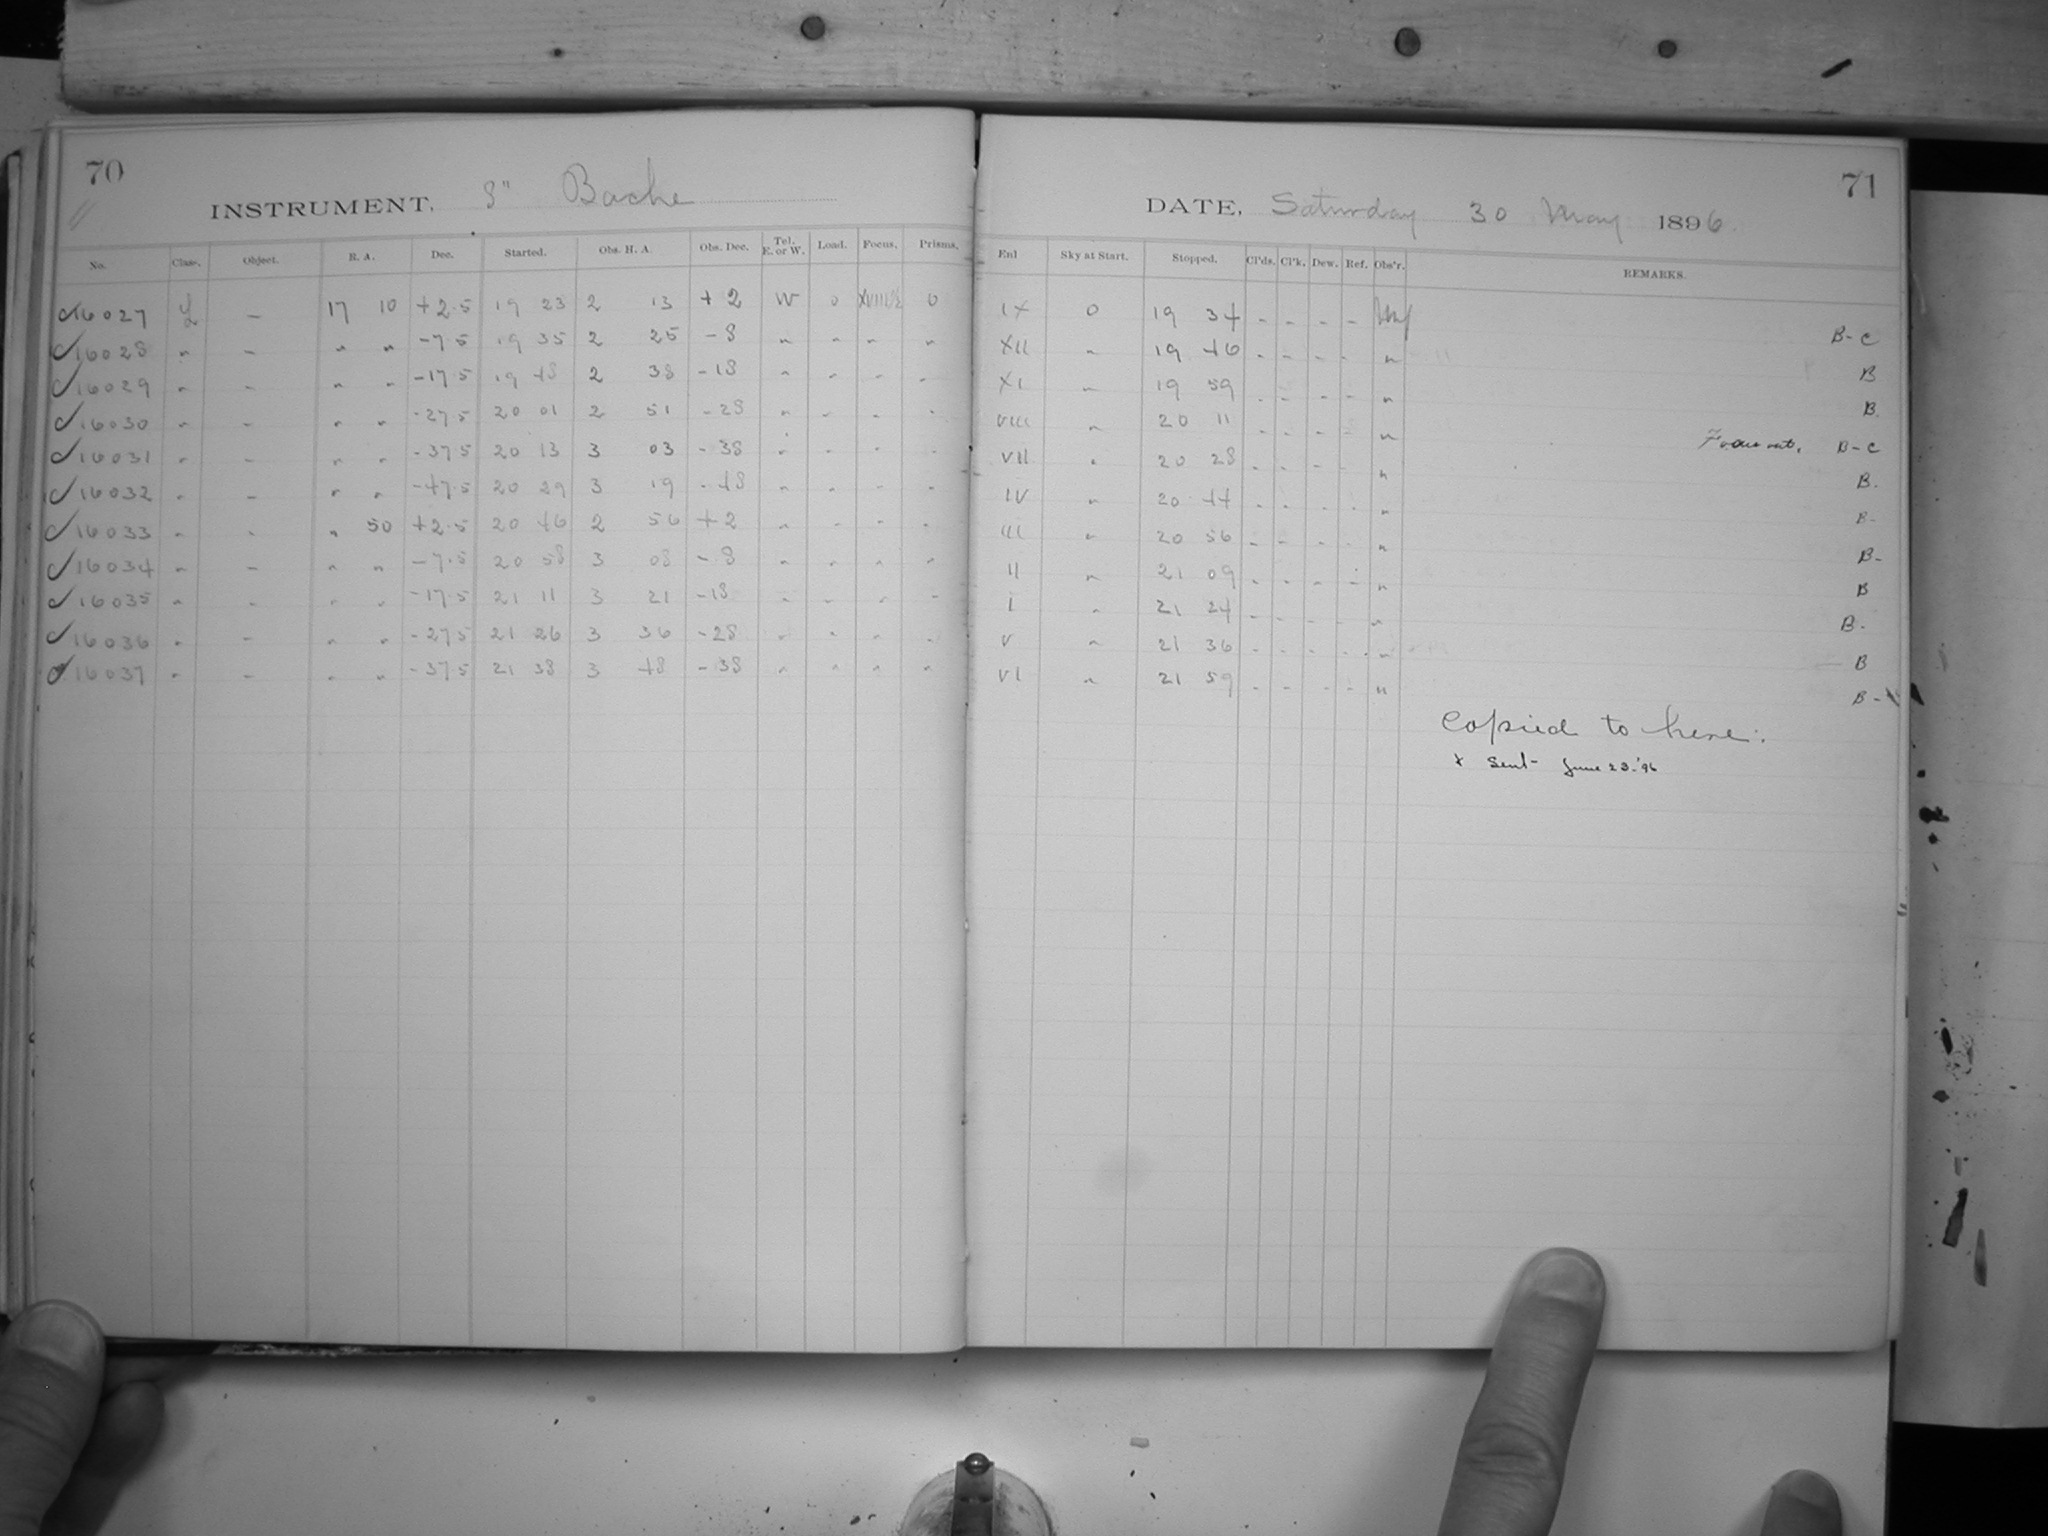 70
INSTRUMENT, 8" Bache
No. Class. Object. R. A. Dec. Started. Obs. H. A. Obs. Dec. Tel. E. or W. Load. Focus. Prisms.
16027 — 17 10 +2.5 19 23 2 13 +2 W 0 0
16028 " — " " -7.5 19 35 2 25 -8 " " " "
16029 " — " " -17.5 19 48 2 38 -18 " " " "
16030 " — " " -27.5 20 01 2 51 -28 " " " "
16031 " — " " -37.5 20 13 3 03 -38 " " " "
16032 " — " " -47.5 20 29 3 19 -48 " " " "
16033 " — " 50 +2.5 20 46 2 56 +2 " " " "
16034 " — " " -7.5 20 58 3 08 -8 " " " "
16035 " — " " -17.5 21 11 3 21 -18 " " " "
16036 " — " " -27.5 21 26 3 36 -28 " " " "
16037 " — " " -37.5 21 38 3 48 -38 " " " "
71
DATE, Saturday 30 May 1896
Enl Sky at Start. Stopped. Cl'ds. Cl'k. Dew. Ref. Obs'r. REMARKS.
IX 0 19 34 - - - - B-C
XII " 19 46 - - - - " B
XI " 19 59 - - - - " B.
VIII " 20 11 - - - - " Focus out. B-C
VII " 20 28 - - - - " B.
IV " 20 44 - - - - " B-
III " 20 56 - - - - " B-
II " 21 09 - - - - " B
I " 21 24 - - - - " B.
V " 21 36 - - - - " B
VI " 21 59 - - - - " B-
Copied to here.
x Sent June 23.'96